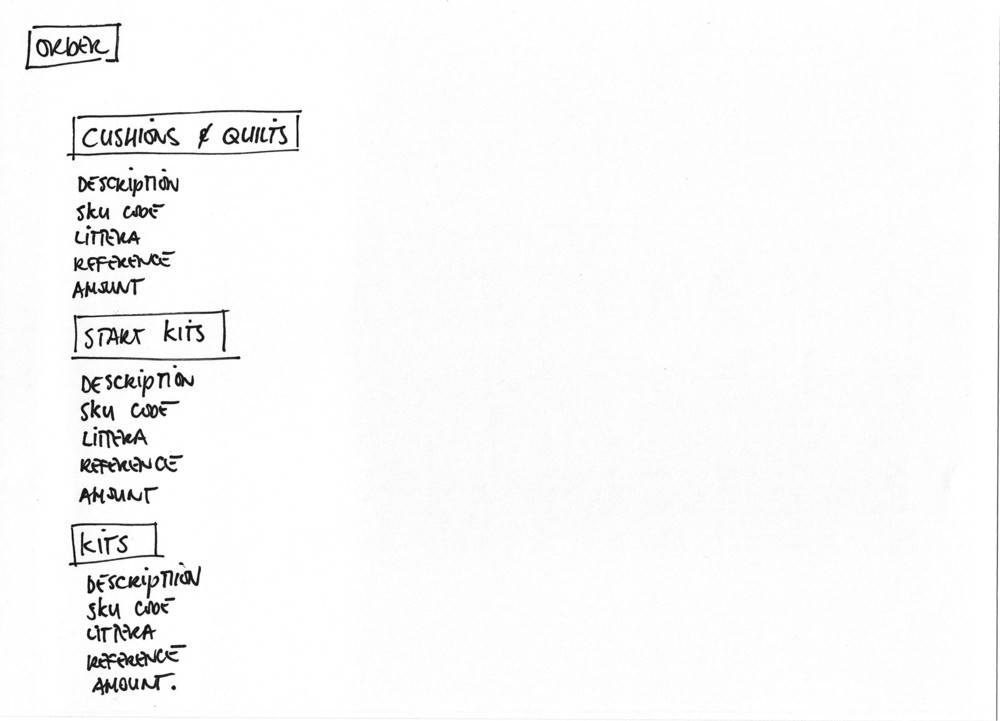 ORDER
CUSHIONS & QUILTS
DESCRIPTION
SKU CODE
LITTERA
REFERENCE
AMOUNT
START KITS
DESCRIPTION
SKU CODE
LITTERA
REFERENCE
AMOUNT
KITS
DESCRIPTION
SKU CODE
LITTERA
REFERENCE
AMOUNT.